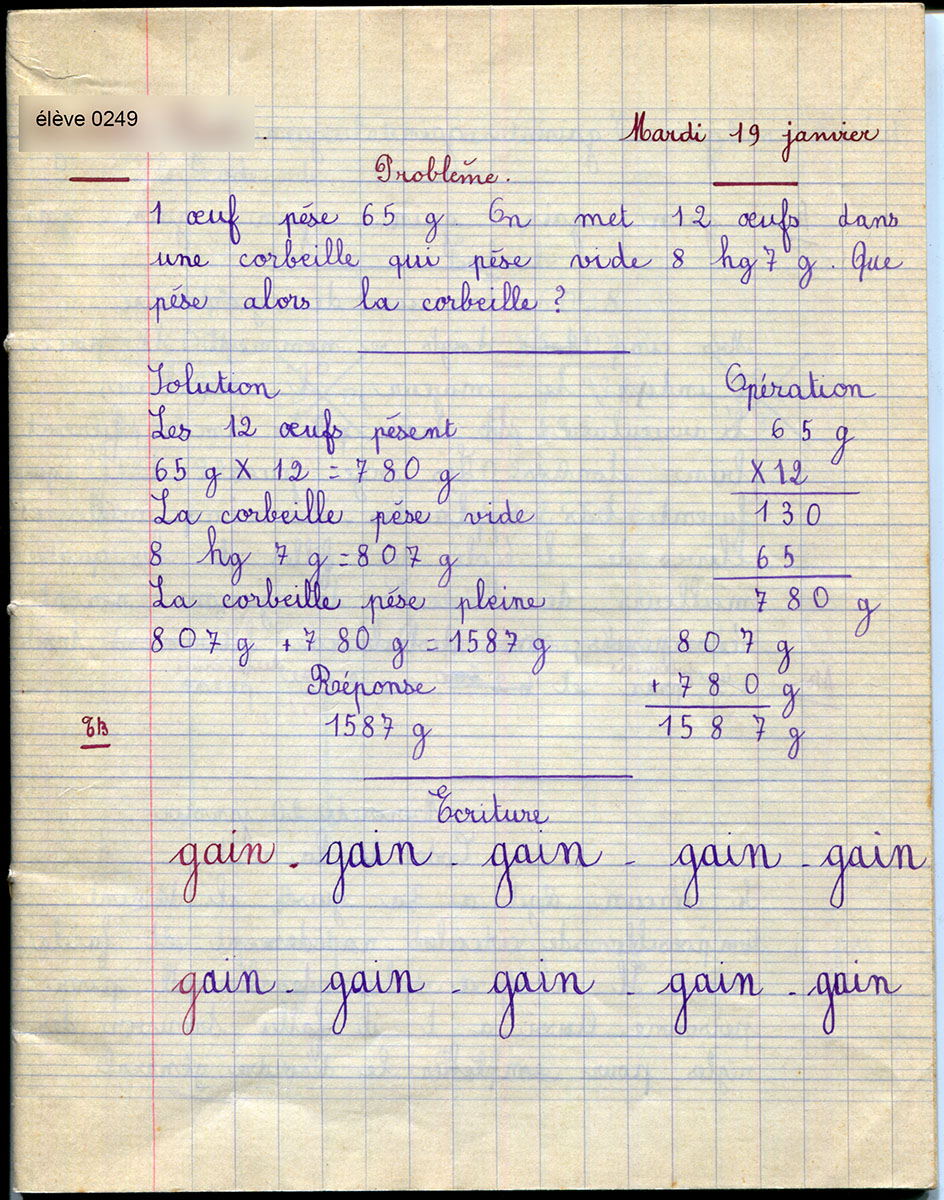 élève 0249
Mardi 19 janvier
Problème.
1 œuf pése 65 g. On met 12 œufs dans
une corbeille qui pése vide 8 hg 7 g. Que
pése alors la corbeille ?
Solution
Opération
Les 12 œufs pésent
65 g
65 g X 12 = 780 g
X 12
La corbeille pése vide
130
8 hg 7 g = 807 g
65
La corbeille pése pleine
780 g
807 g + 780 g = 1587 g
807 g
Réponse
+ 780 g
TB
1587 g
1587 g
Ecriture
gain - gain - gain - gain - gain
gain - gain - gain - gain - gain